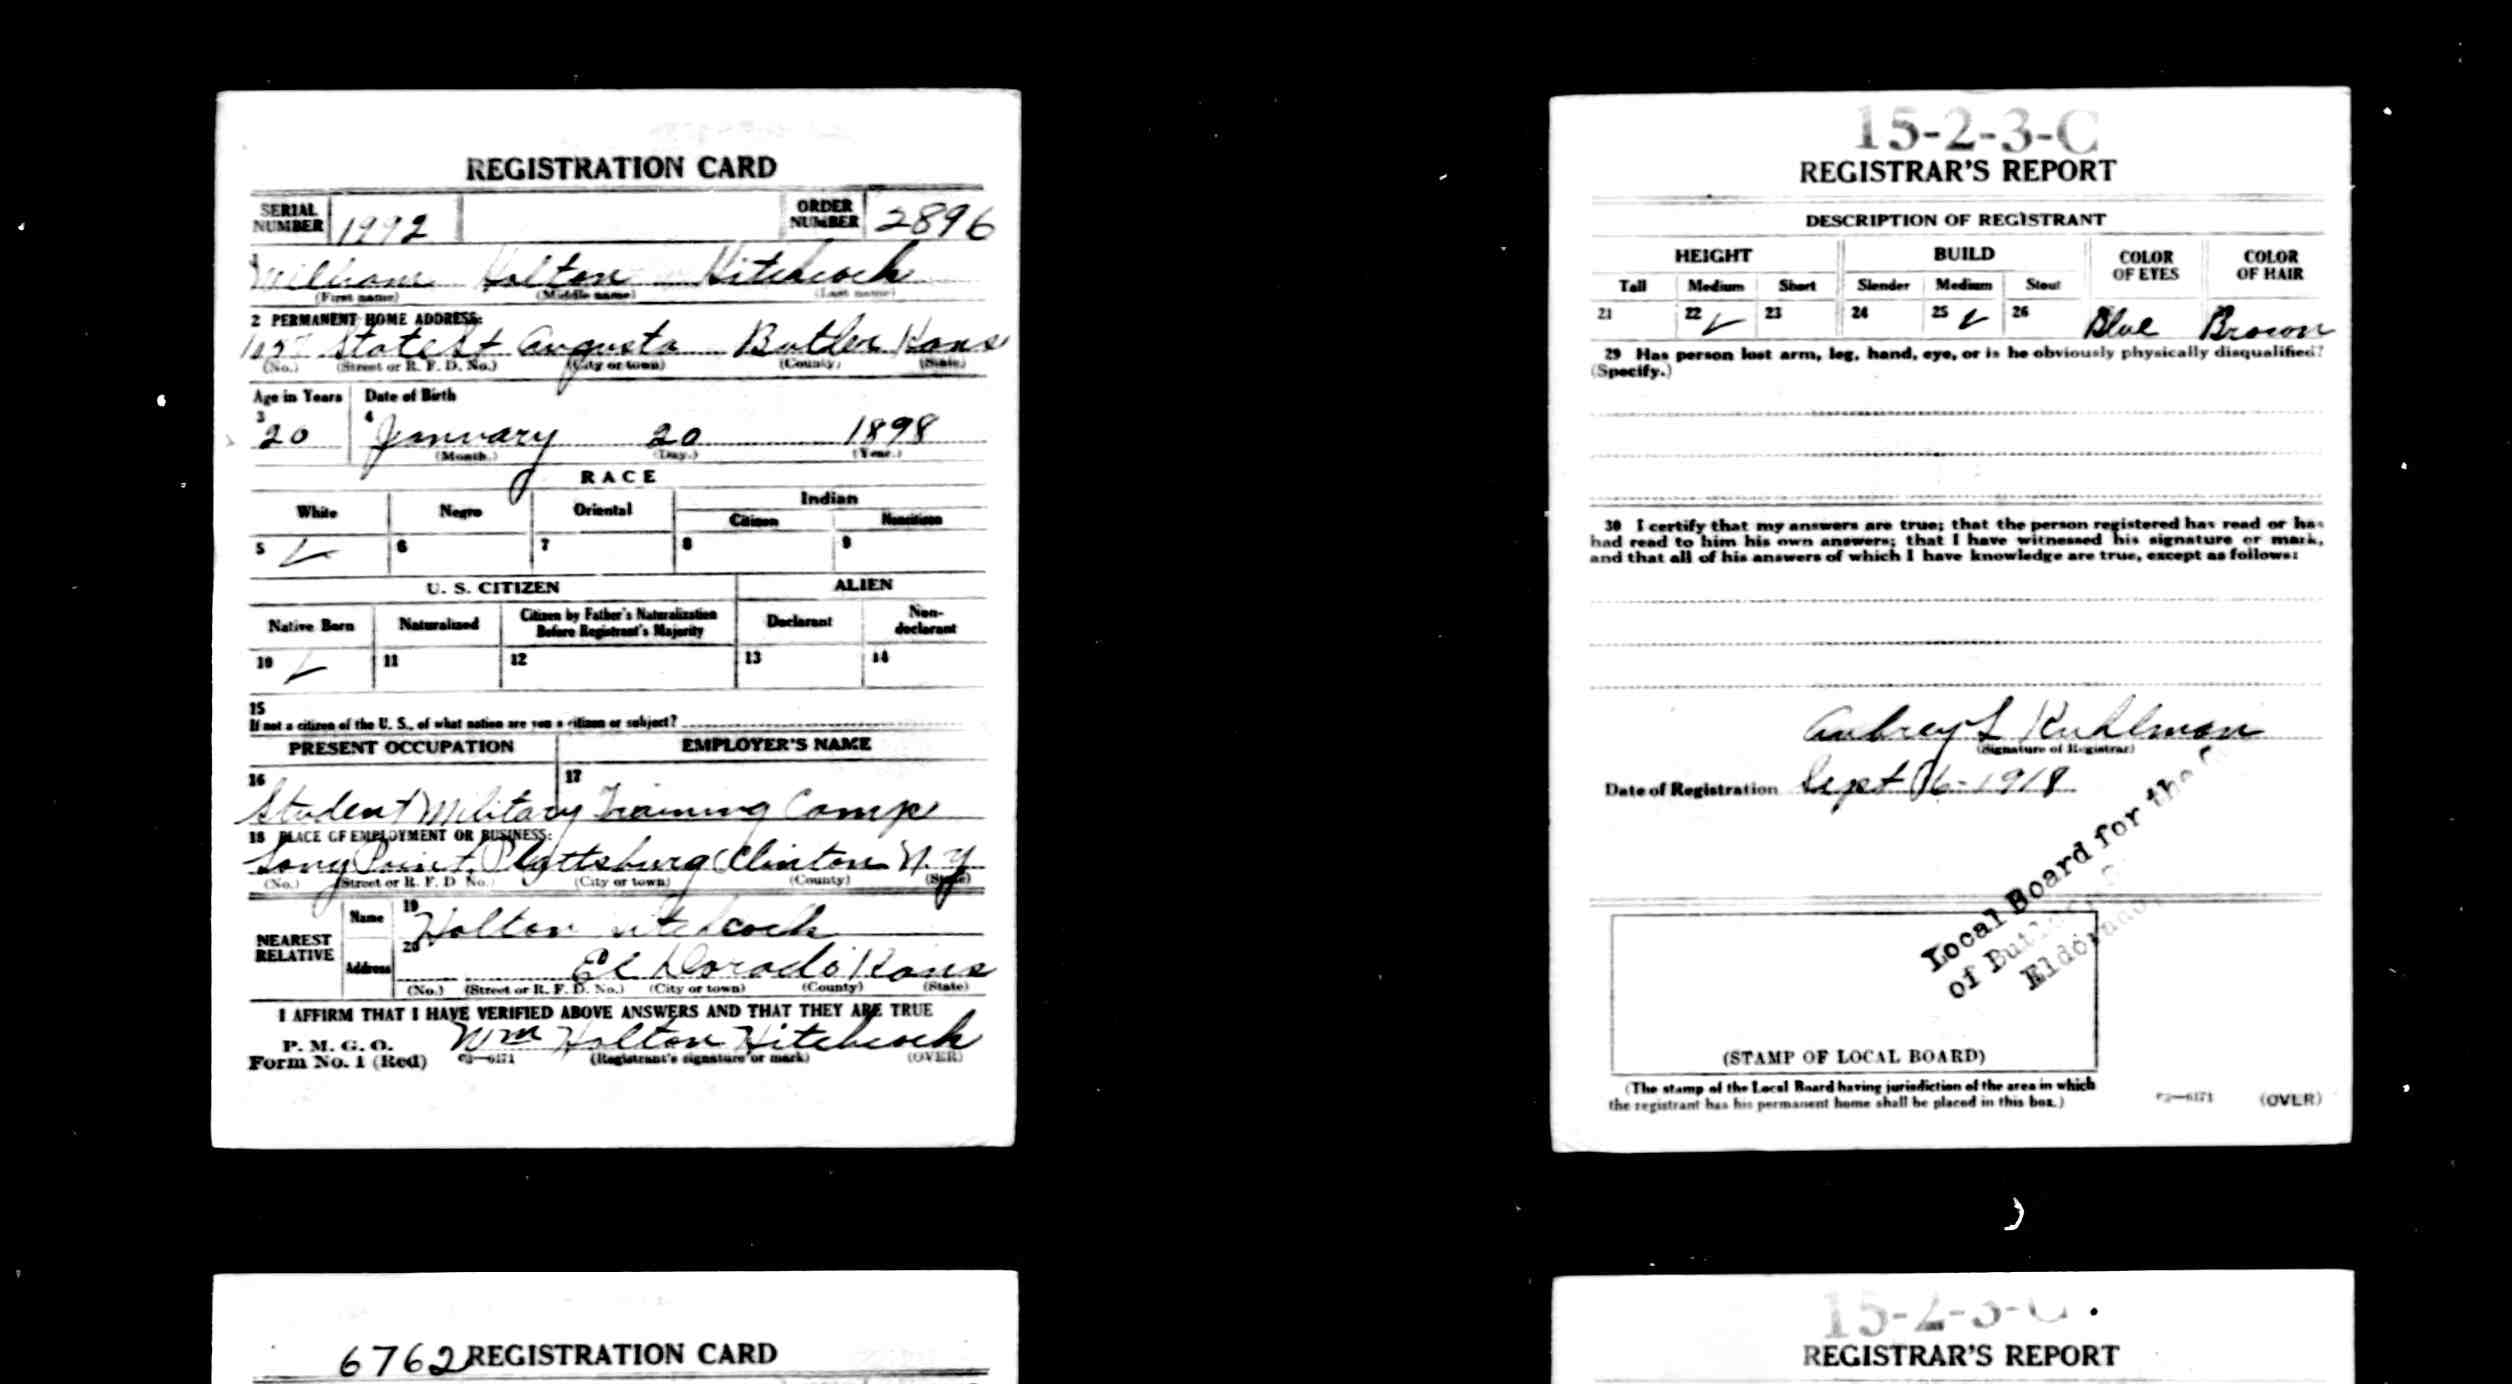 REGISTRATION CARD
SERIAL NUMBER 1992 ORDER NUMBER 2896
1 William Holton Hitchcock
(First name) (Middle name) (Last name)
2 PERMANENT HOME ADDRESS:
State St Augusta Butler Kans
(No.) (Street or R. F. D. No.) (City or town) (County) (State)
Age in Years Date of Birth
3 4
20 January 20 1898
(Month.) (Day.) (Year.)
RACE
White Negro Oriental Indian
Citizen Noncitizen
5 ✓ 6 7 8 9
U. S. CITIZEN ALIEN
Native Born Naturalized Citizen by Father's Naturalization Before Registrant's Majority Declarant Non-declarant
10 ✓ 11 12 13 14
15
If not a citizen of the U. S., of what nation are you a citizen or subject?
PRESENT OCCUPATION EMPLOYER'S NAME
16 17
Student Military Training Camp
18 PLACE OF EMPLOYMENT OR BUSINESS:
Long Point Plattsburg Clinton N.Y
(No.) (Street or R. F. D. No.) (City or town) (County) (State)
NEAREST RELATIVE
Name 19 Holton Hitchcock
Address 20 El Dorado Kans
(No.) (Street or R. F. D. No.) (City or town) (County) (State)
I AFFIRM THAT I HAVE VERIFIED ABOVE ANSWERS AND THAT THEY ARE TRUE
P. M. G. O.
Form No. 1 (Red) 03—6171 Wm Holton Hitchcock
(Registrant's signature or mark) (OVER)
15-2-3-C
REGISTRAR'S REPORT
DESCRIPTION OF REGISTRANT
HEIGHT BUILD COLOR OF EYES COLOR OF HAIR
Tall Medium Short Slender Medium Stout
21 22 ✓ 23 24 25 ✓ 26 Blue Brown
29 Has person lost arm, leg, hand, eye, or is he obviously physically disqualified?
(Specify.)
30 I certify that my answers are true; that the person registered has read or has
had read to him his own answers; that I have witnessed his signature or mark,
and that all of his answers of which I have knowledge are true, except as follows:
Aubrey L Kuhlman
(Signature of Registrar)
Date of Registration Sept 16-1918
Local Board for the
of Butler
Eldorado
(STAMP OF LOCAL BOARD)
(The stamp of the Local Board having jurisdiction of the area in which
the registrant has his permanent home shall be placed in this box.)
03—6171 (OVER)
6762 REGISTRATION CARD
15-2-3-C
REGISTRAR'S REPORT